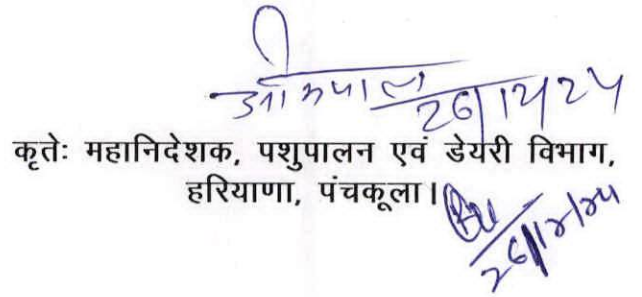 ओमपाल
26/12/24
कृतेः महानिदेशक, पशुपालन एवं डेयरी विभाग,
हरियाणा, पंचकूला।
26/12/24